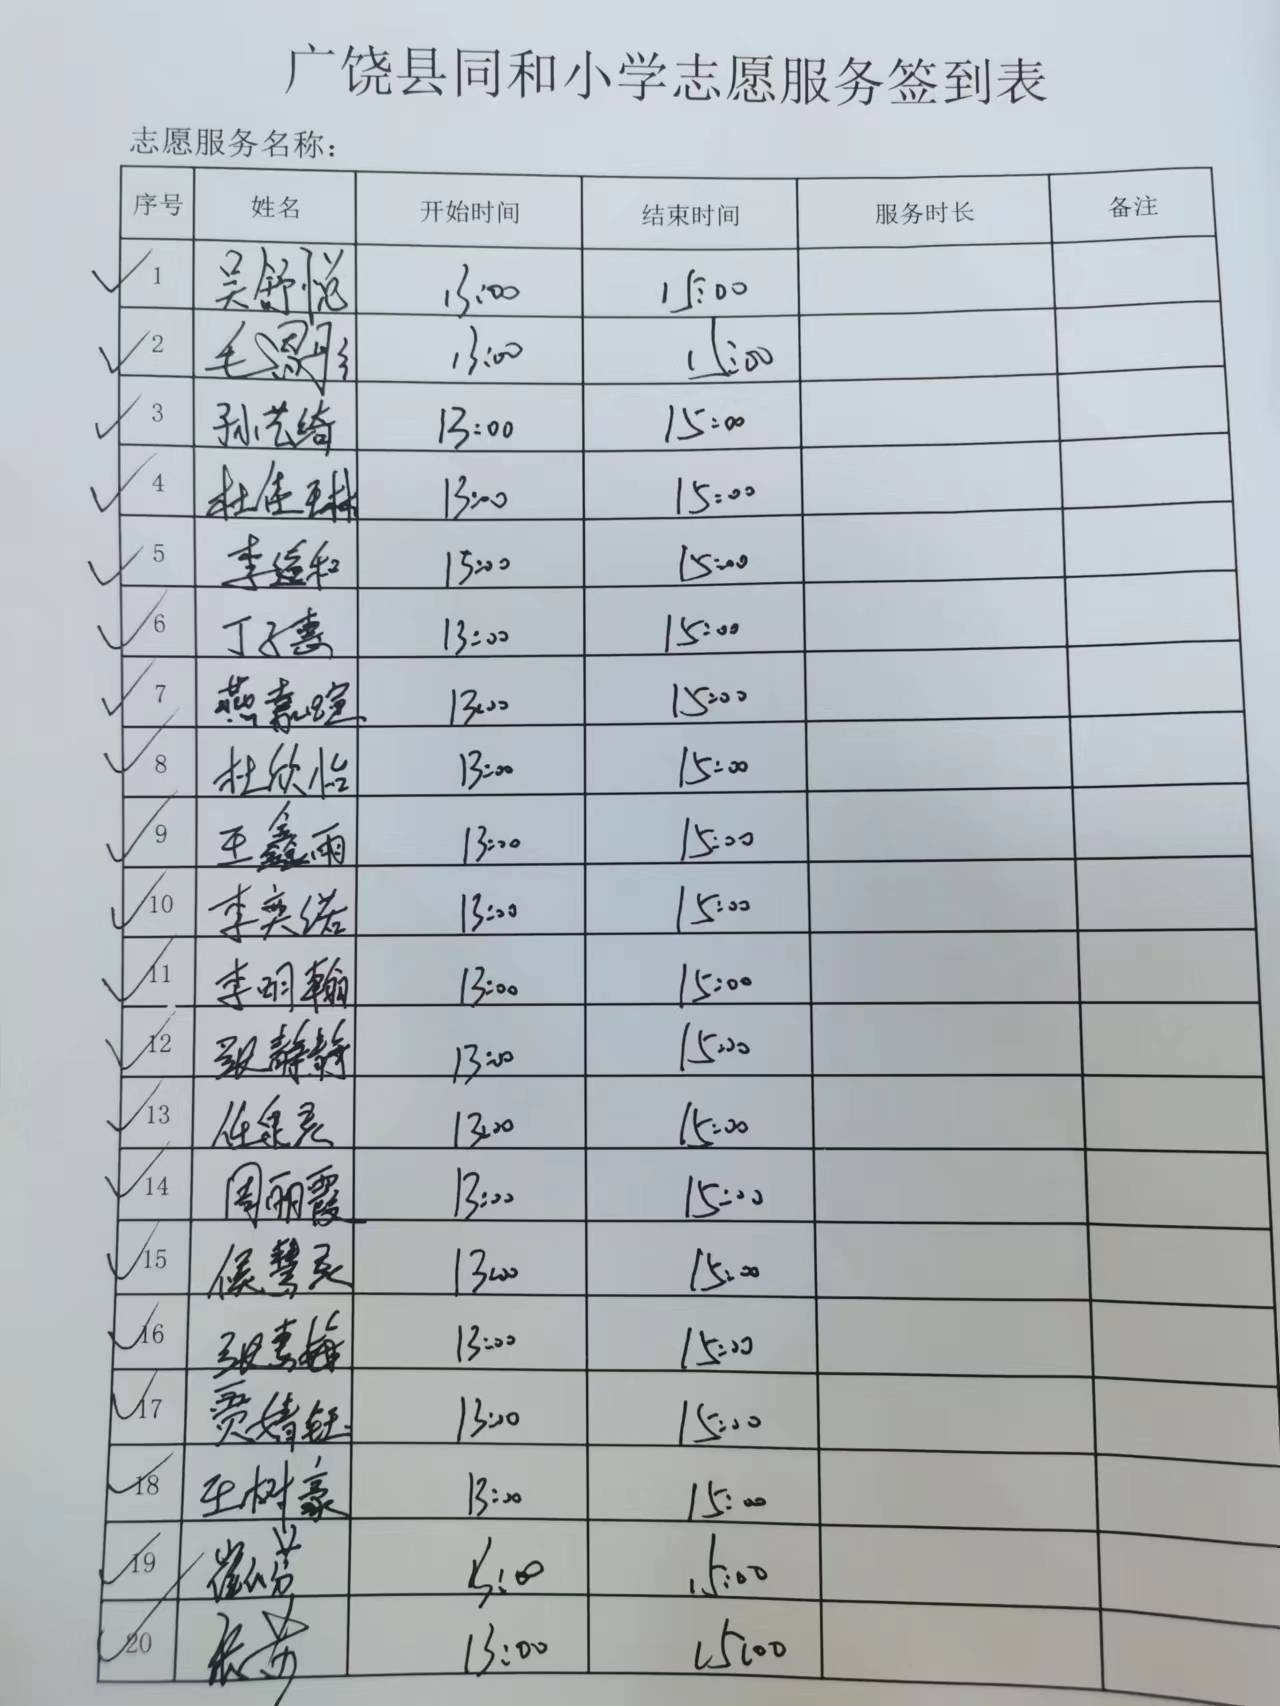 广饶县同和小学志愿服务签到表
志愿服务名称：
序号 姓名 开始时间 结束时间 服务时长 备注
1 吴舒悦 13:00 15:00
2 毛恩彤 13:00 15:00
3 孙艺绮 13:00 15:00
4 杜佳琳 13:00 15:00
5 李 和 15:00 15:00
6 丁子惠 13:00 15:00
7 燕嘉暄 13:00 15:00
8 杜欣怡 13:00 15:00
9 王鑫雨 13:00 15:00
10 李奕诺 13:00 15:00
11 李明翰 13:00 15:00
12 张静静 13:00 15:00
13 任 13:00 15:00
14 周丽霞 13:00 15:00
15 侯慧 13:00 15:00
16 张春梅 13:00 15:00
17 贾婧钰 13:00 15:00
18 王树豪 13:00 15:00
19 崔 芳 13:00 15:00
20 张 13:00 15:00